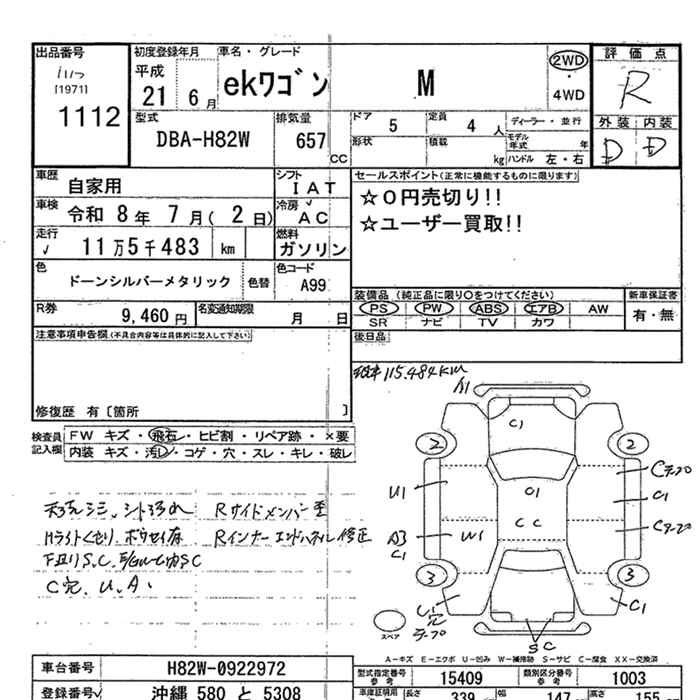 出品番号
[1971]
1112
初度登録年月
平成
21 6月
車名・グレード
ekワゴン M
2WD
・
4WD
評価点
R
外装 内装
D D
型式
DBA-H82W
排気量
657 CC
ドア 5
定員 4 人
形状
積載 kg
ディーラー・並行
モデル年式 年
ハンドル 左・右
車歴 自家用
車検 令和 8年 7月( 2日)
走行 √ 11万5千483 km
色 ドーンシルバーメタリック 色替
シフト IAT
冷房 √ AC
燃料 ガソリン
色コード A99
R券 9,460円
名変通知期限 月 日
セールスポイント(正常に機能するものに限ります)
☆0円売切り!!
☆ユーザー買取!!
装備品(純正品に限り○をつけてください)
PS PW ABS エアB AW
SR ナビ TV カワ
新車保証書
有・無
後日品
注意事項申告欄(不具合内容等は具体的に記入して下さい)
修復歴 有〔箇所 〕
検査員記入欄
FW キズ・飛石・ヒビ割・リペア跡・×要
内装 キズ・汚レ・コゲ・穴・スレ・キレ・破レ
115,484KM
A1
C1
2 2
U1
C1
C1
A3
C1
W1
CC
3 3
C1
SC
スペア
Rサイドメンバー歪
Rインナーエンドパネル修正
C穴、U、A、
A-キズ E-エクボ U-凹ミ W-補修跡 S-サビ C-腐食 XX-交換済
車台番号 H82W-0922972
登録番号 沖縄 580 と 5308
型式指定番号 参考 15409
類別区分番号 参考 1003
車庫証明用 長さ 339 幅 147 高さ 155